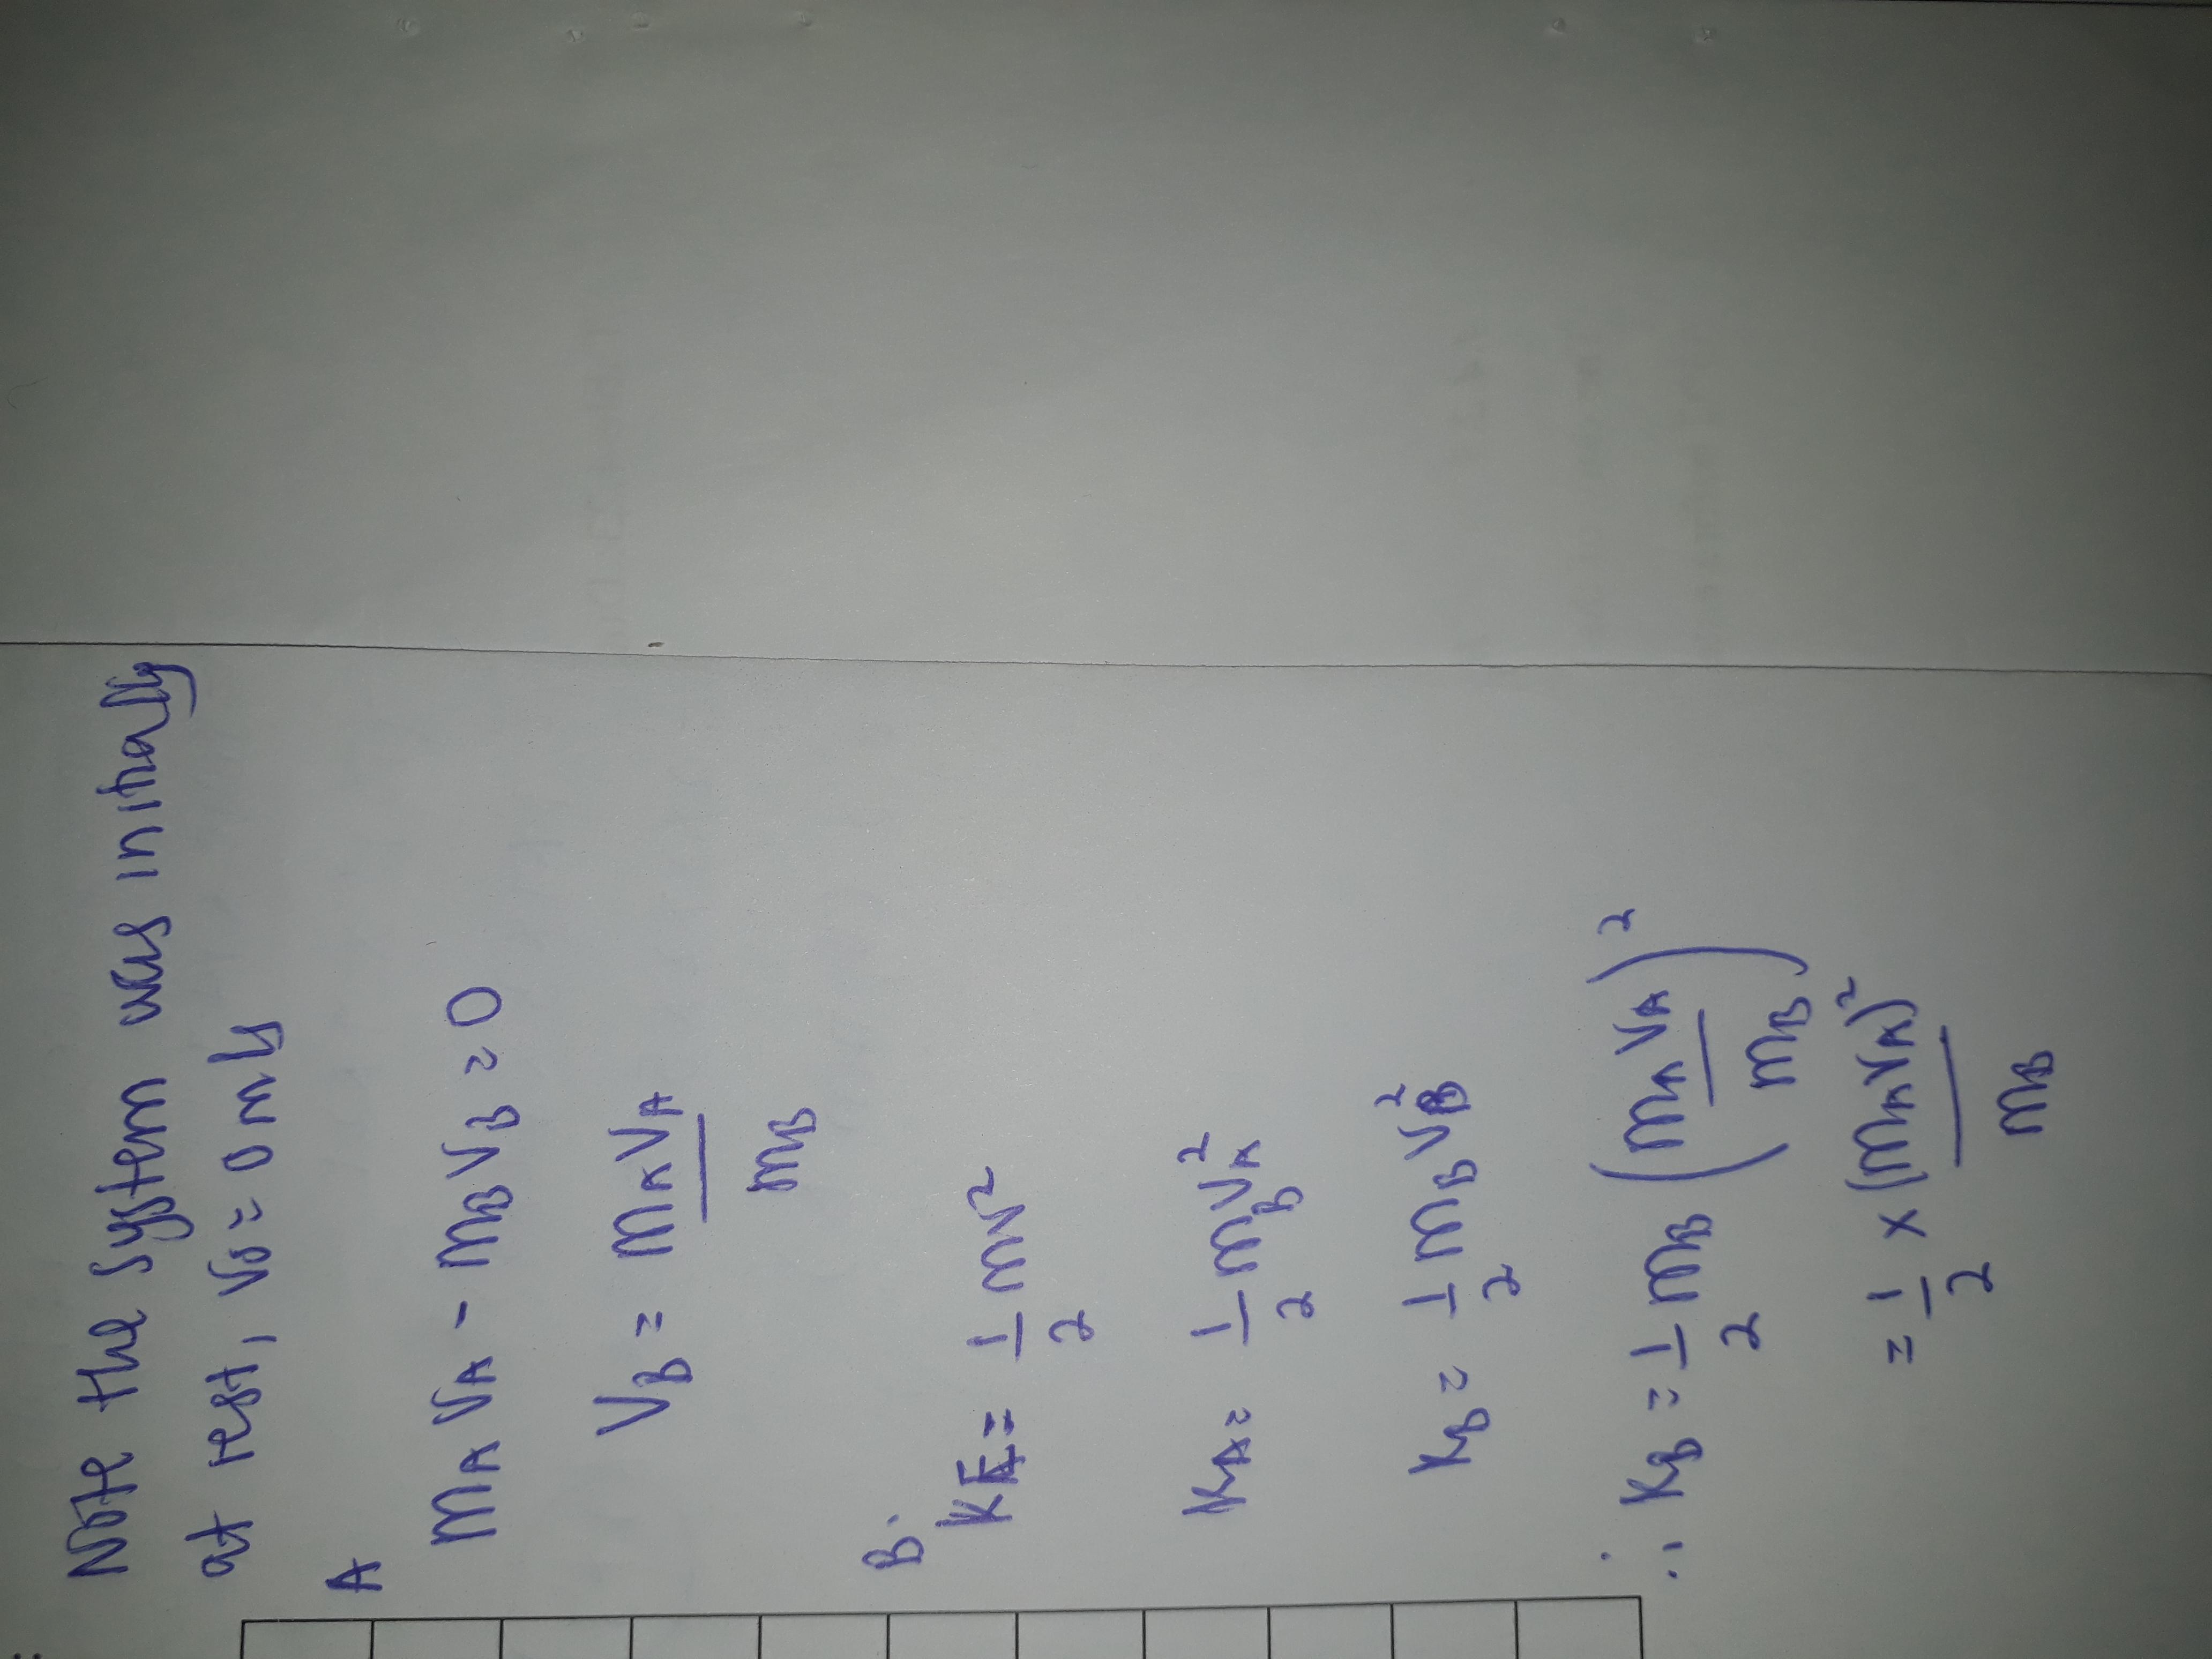 Note the system was initially
at rest, V₀ = 0 m/s
A
mA vA - mB vB = 0
VB = mA VA / mB
B.
KE = 1/2 mv²
KA = 1/2 mB vA²
KB = 1/2 mB vB²
∴ KB = 1/2 mB (mA vA / mB)²
= 1/2 × (mA vA)² / mB